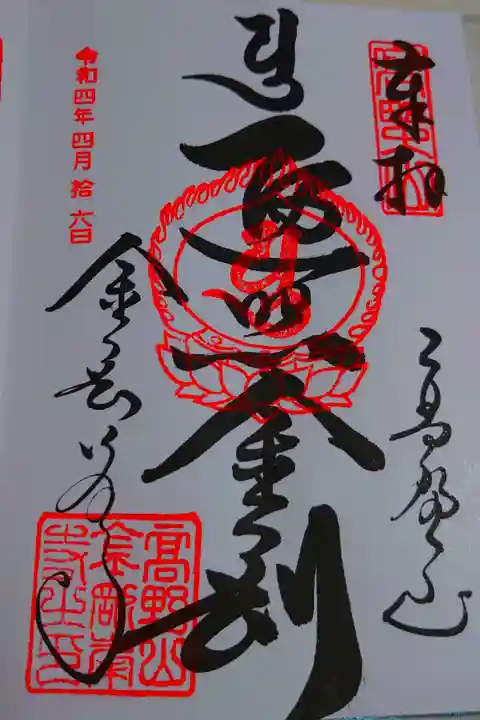 奉拝
高野山
遍照金剛
金剛峯寺
令和四年四月拾六日
高野山金剛峯寺之印